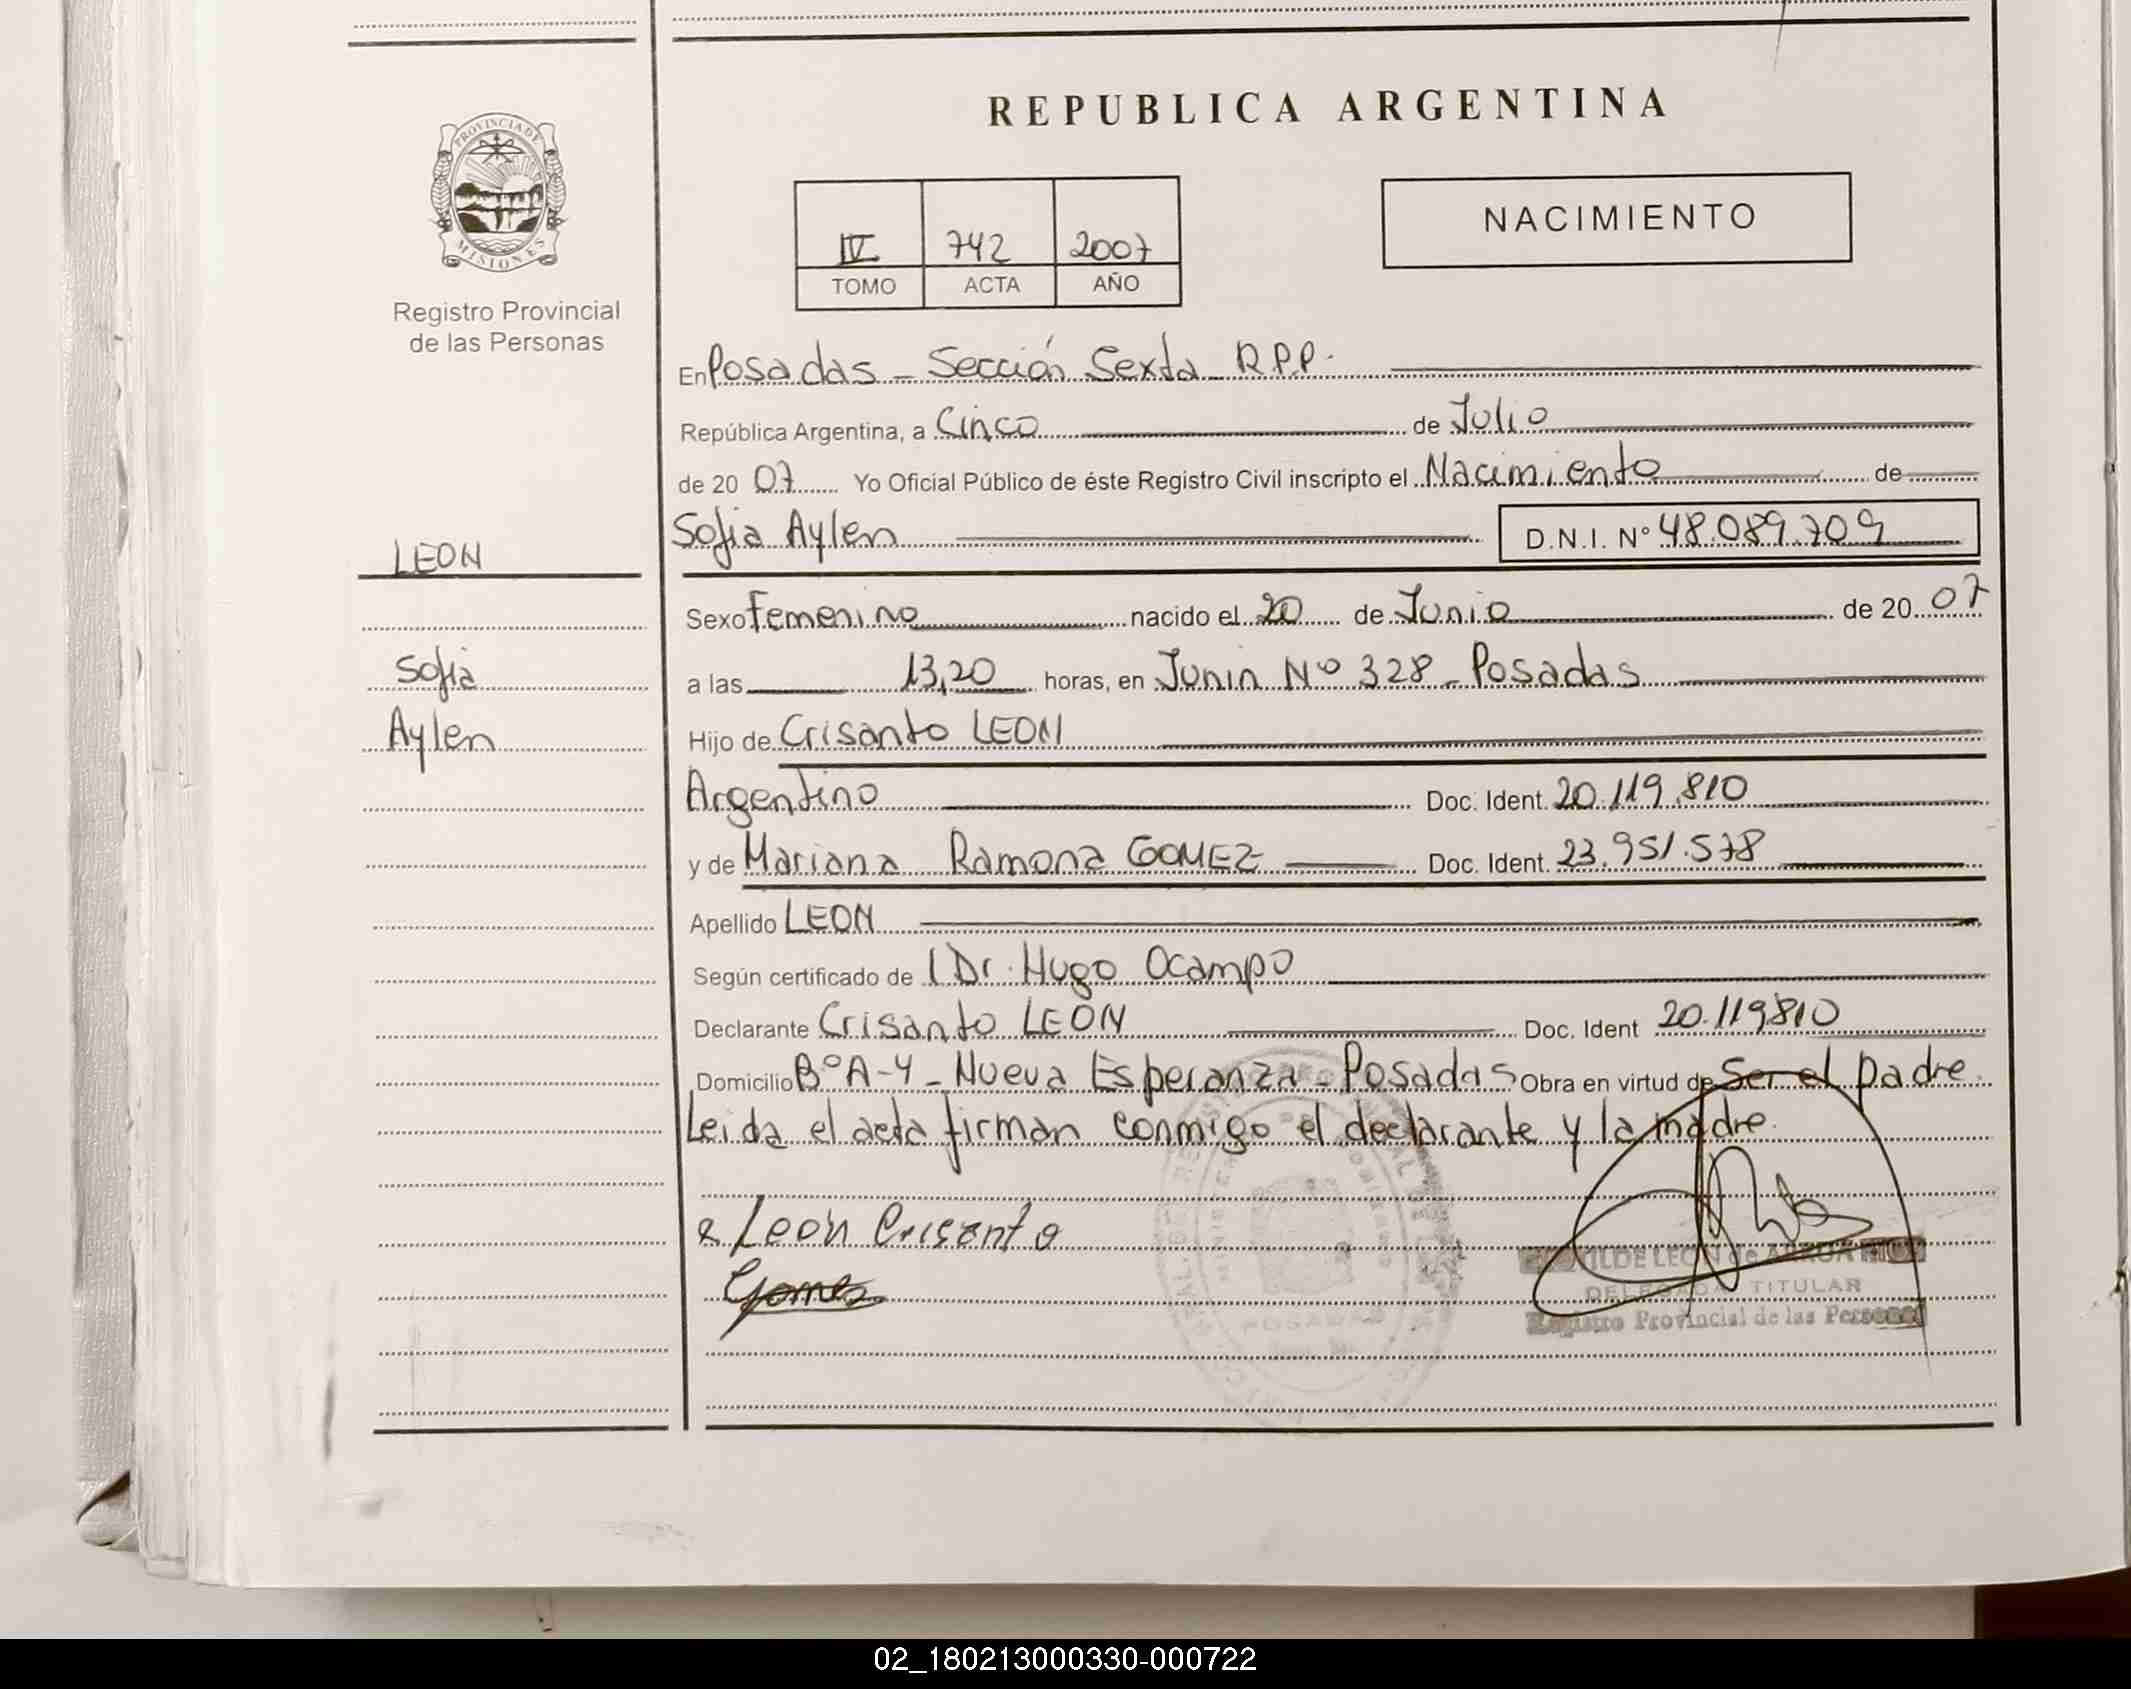 REPUBLICA ARGENTINA
PROVINCIA DE
MISIONES
Registro Provincial
de las Personas
IV 742 2007
TOMO ACTA AÑO
NACIMIENTO
En Posadas - Sección Sexta R.P.P.
República Argentina, a Cinco de Julio
de 2007 Yo Oficial Público de éste Registro Civil inscripto el Nacimiento de
Sofia Aylen D.N.I. Nº 48.089.709
LEON
Sofia
Aylen
Sexo Femenino nacido el 20 de Junio de 2007
a las 13,20 horas, en Junin Nº 328 - Posadas
Hijo de Crisanto LEON
Argentino Doc. Ident. 20.119.810
y de Mariana Ramona GOMEZ Doc. Ident. 23.951.578
Apellido LEON
Según certificado de l Dr. Hugo Ocampo
Declarante Crisanto LEON Doc. Ident 20.119810
Domicilio Bº A-4 - Nueva Esperanza - Posadas Obra en virtud de Ser el padre
Leida el acta firman conmigo el declarante y la madre.
León Crisanto
Gomez
LEON de
DELEGADA TITULAR
Registro Provincial de las Personas
POSADAS
02_180213000330-000722